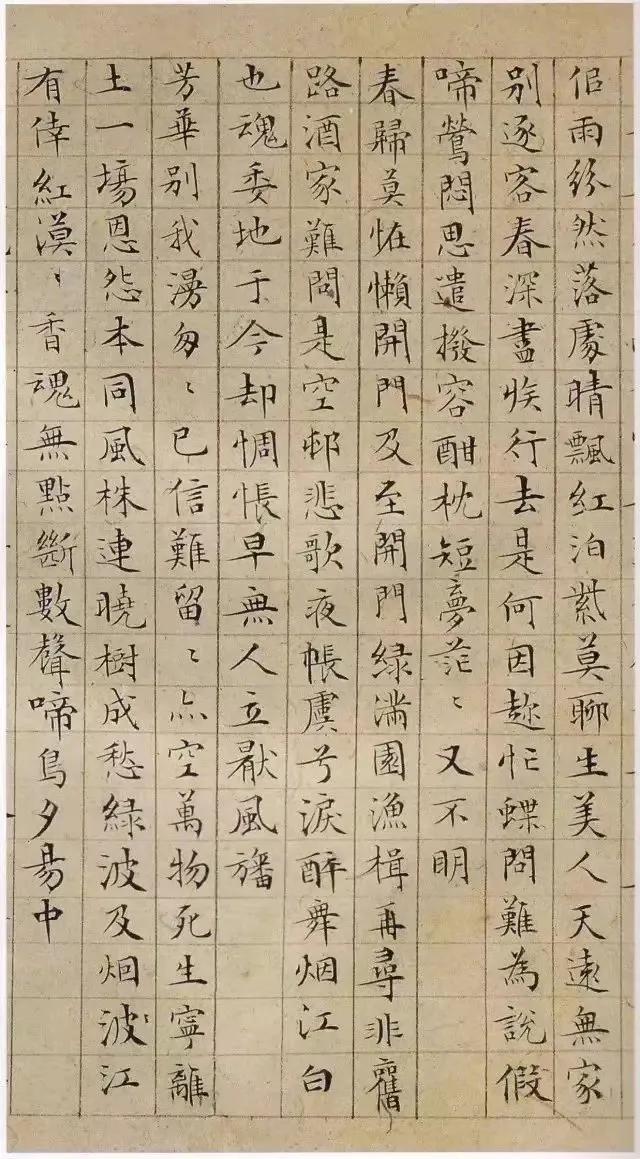 佀雨紛然落處晴飄紅泊紫莫聊生美人天遠無家
別逐客春深盡族行去是何因趂忙蝶問難為說假
啼鶯悶思遣撥容酣枕短夢茫〻又不明
春歸莫恠懶開門及至開門緑滿園漁楫再尋非舊
路酒家難問是空邨悲歌夜帳虞兮淚醉舞烟江白
也魂委地于今却惆悵早無人立厭風旛
芳華別我漫匆〻已信難留〻亦空萬物死生寧離
土一塲恩怨本同風株連曉樹成愁緑波及烟波江
有倖紅漠〻香魂無點斷數聲啼鳥夕昜中